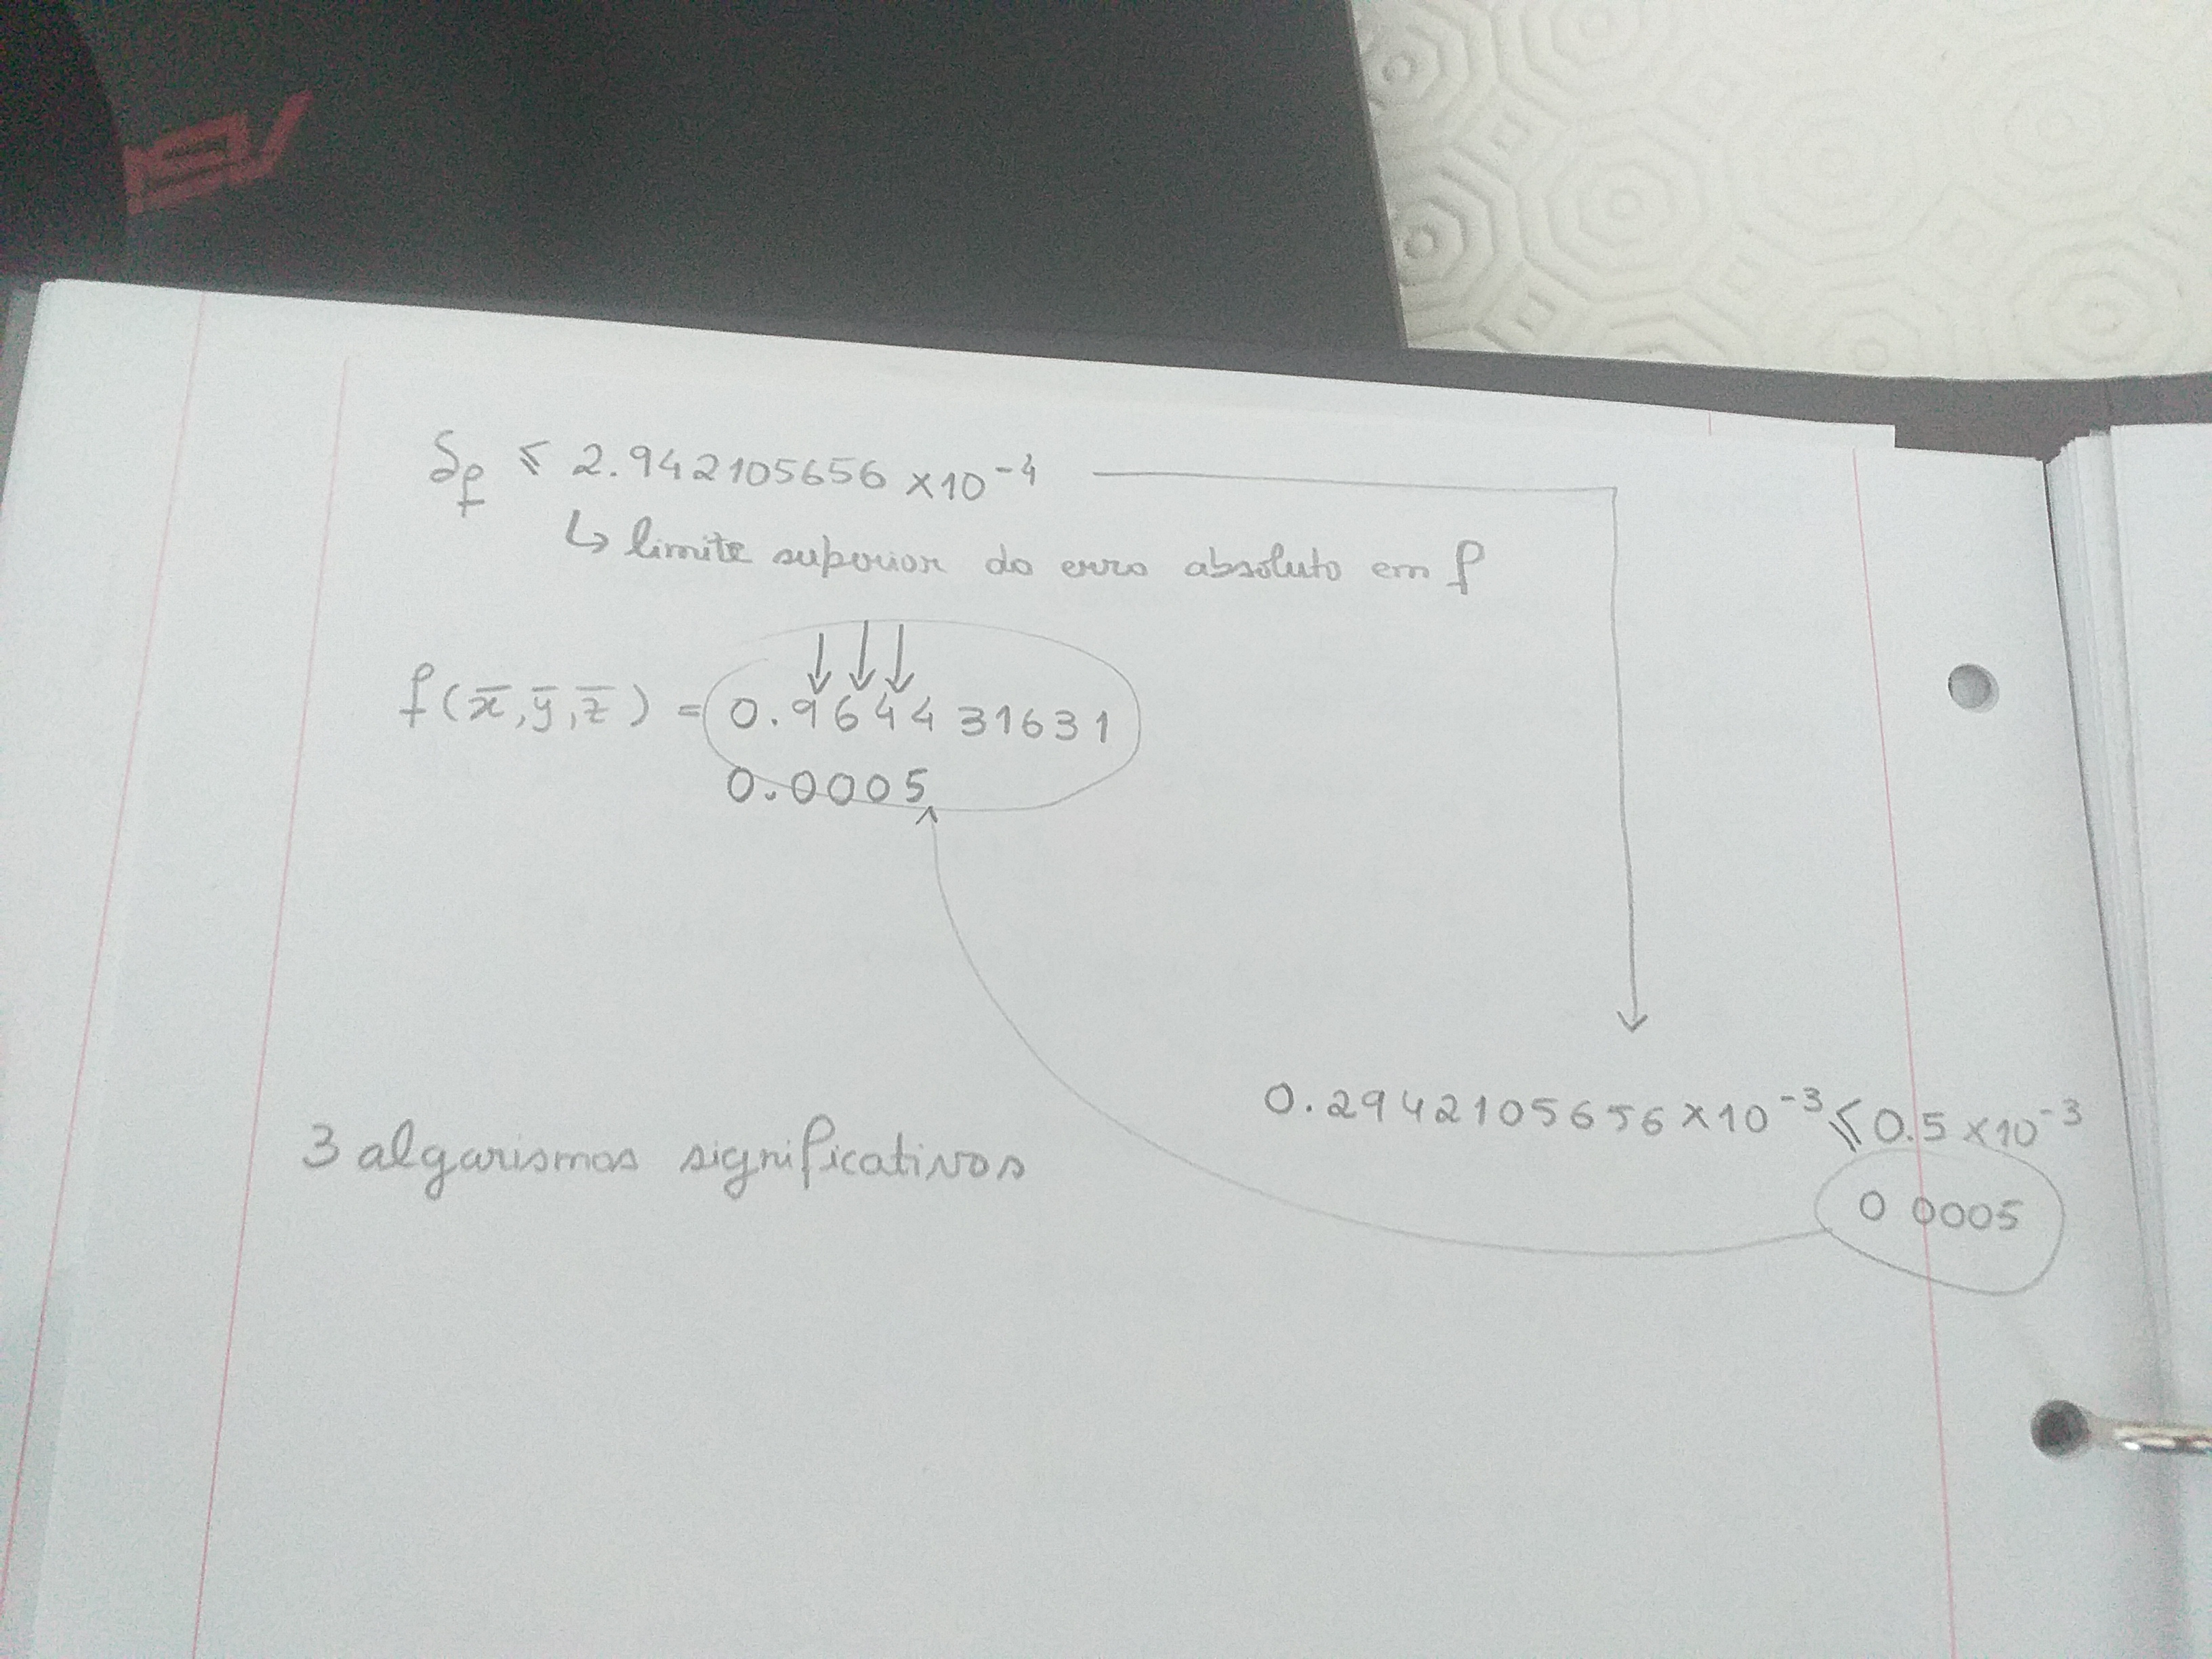 δf ≤ 2.942105656 ×10^-4
↳ limite superior do erro absoluto em f
↓ ↓ ↓
f(x̄, ȳ, z̄) = 0.964431631
0.0005
0.2942105656 ×10^-3 ≤ 0.5 ×10^-3
3 algarismos significativos
0 0005